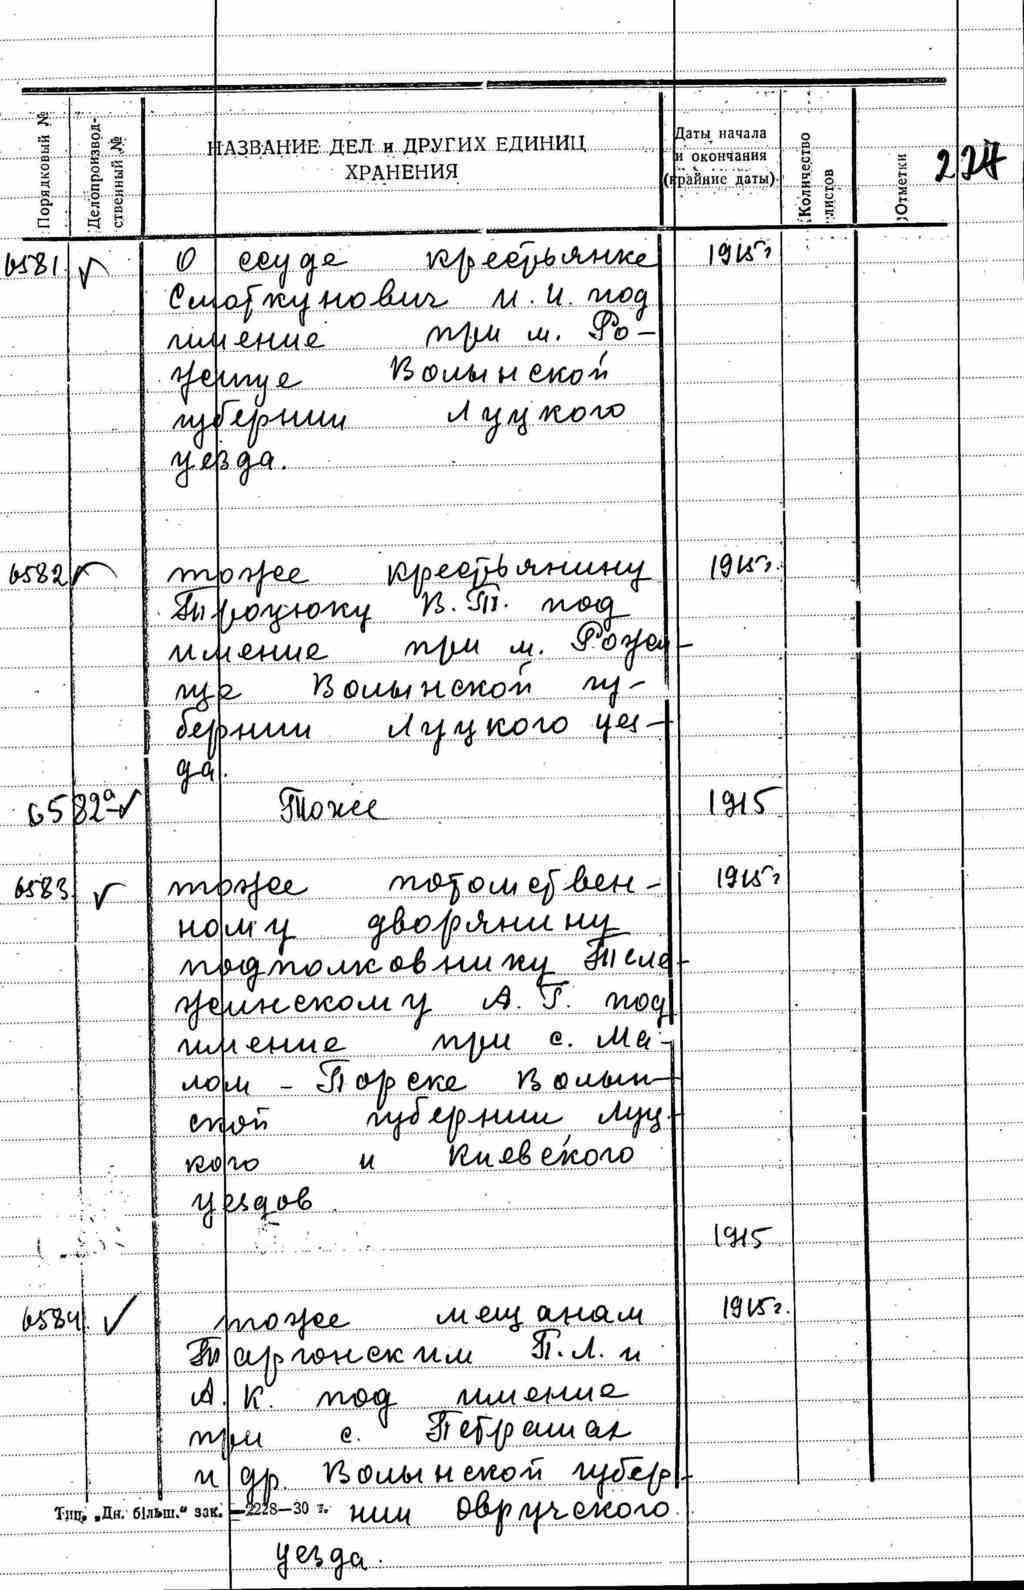 227
Порядковый №
Делопроизвод-
ственный №
НАЗВАНИЕ ДЕЛ и ДРУГИХ ЕДИНИЦ
ХРАНЕНИЯ
Даты начала
и окончания
(крайние даты)
Количество
листов
Отметки
6581 ✓ О ссуде крестьянке 1915 г
Смоткунович И. И. под
имение при м. Ро-
жище Волынской
губернии Луцкого
уезда.
6582 тоже крестьянину 1915 г.
Троцюку В. П. под
имение при м. Рожи-
ще Волынской гу-
бернии Луцкого уез-
да.
6582а ✓ Тоже 1915
6583 ✓ тоже потомствен- 1915 г
ному дворянину
подполковнику Теле-
жинскому А. Г. под
имение при с. Ма-
лом - Порске Волын-
ской губернии Луц-
кого и Киевского
уездов
1915
6584 ✓ тоже мещанам 1915 г.
Таргонским П. Л. и
А. К. под имение
при с. Петрашах
и др. Волынской губер-
Тип. „Дн. більш." зак. —2228—30 т. нии Овручского
уезда.